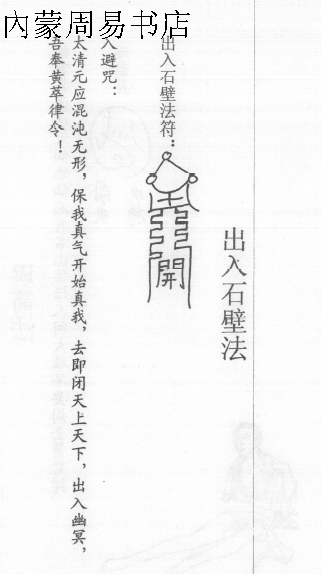 内蒙周易书店
出入石壁法
出入石壁法符：
開
入避咒：
太清元应混沌无形，保我真气开始真我，去即闭天上天下，出入幽冥，
吾奉黄萃律令！